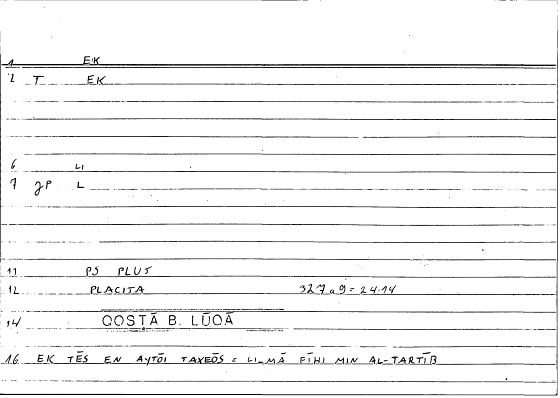 1 EK
2 T EK
6 LI
7 JP L
11 PS PLUS
12 PLACITA 327a9 = 24.14
14 QOSTĀ B. LŪQĀ
16 EK TĒS EN AYTŌI TAXEŌS = LI-MĀ FĪHI MIN AL-TARTĪB